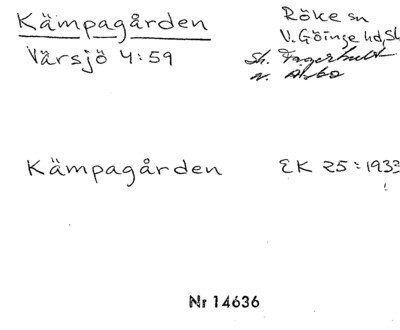 Kämpagården
Värsjö 4:59
Röke sn
V. Göinge hd, Sk
Sh. Fagerhult
Kämpagården
EK 25:1933
Nr 14636